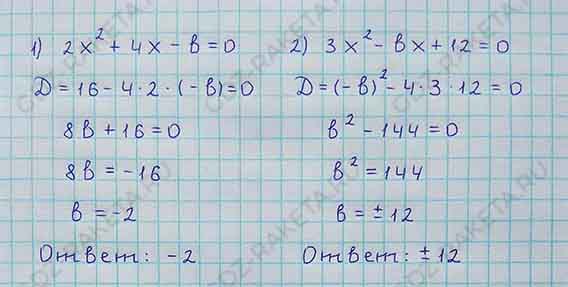 1) 2x² + 4x - в = 0
D = 16 - 4·2·(-в) = 0
8в + 16 = 0
8в = -16
в = -2
Ответ: -2
2) 3x² - вx + 12 = 0
D = (-в)² - 4·3·12 = 0
в² - 144 = 0
в² = 144
в = ± 12
Ответ: ± 12
GDZ-RAKETA.RU